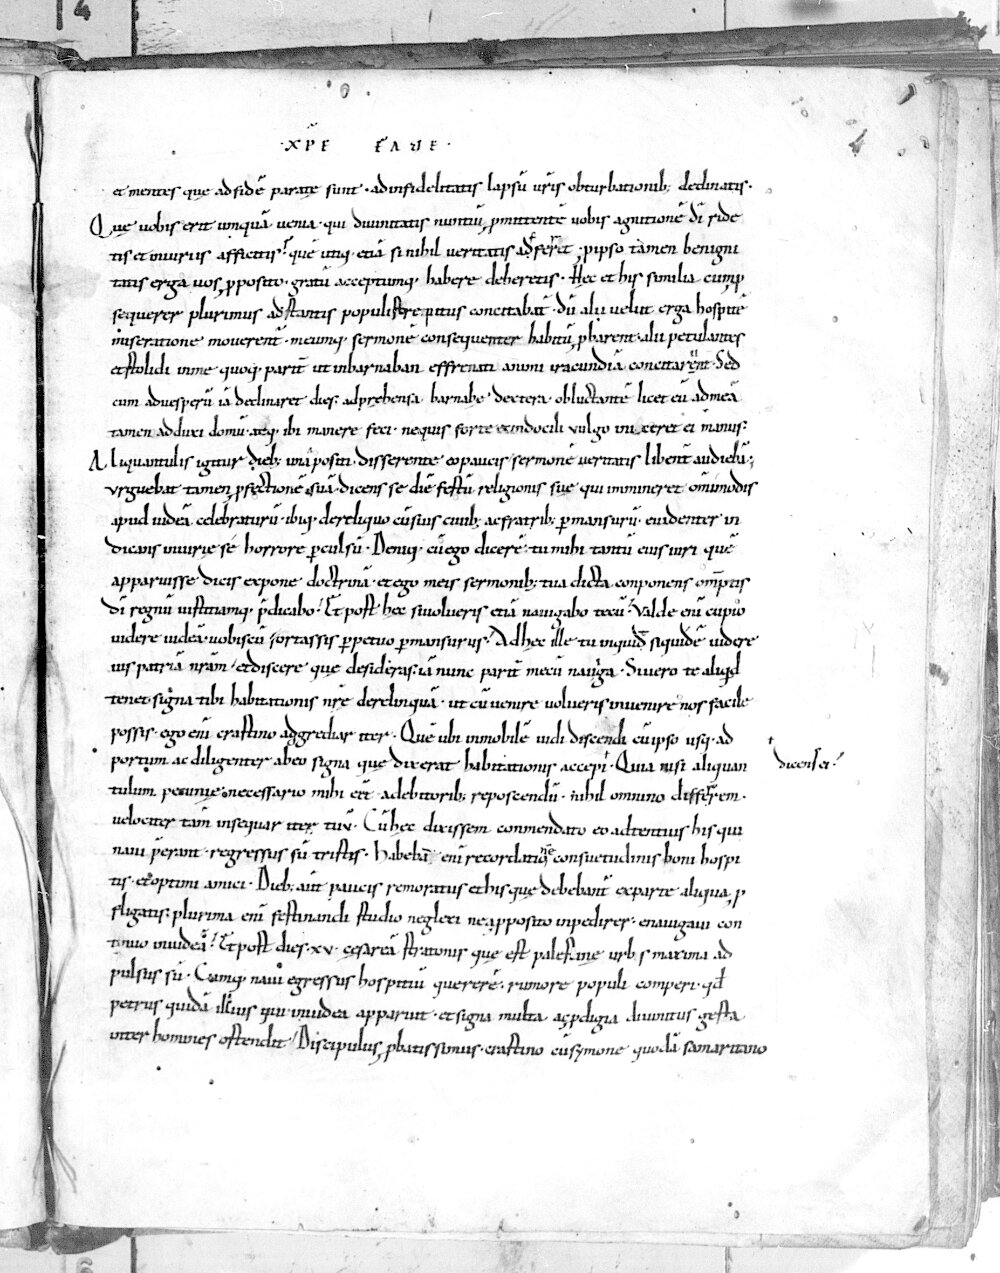 ·XP̄E FAVE·
et mentes que ad fidē parate sunt · ad infidelitatis lapsū ur̄is obturbationib; declinatis·
Quę uobis erit umquā uenia · qui diuinitatis nuntiū, ꝓmittentē uobis agnitionē dī ride
tis et iniuriis afficitis? quē utiq; etiā si nihil ueritatis adferret, ꝓ ipso tamen benigni
tatis erga uos, ꝓposito · gratū acceptumq; habere deberetis · Hęc et his similia cum ꝓ
sequerer plurimus adstantis populi strepitus concitabat̄ · dū alii uelut erga hospitē
miseratione mouerent̄ · meumq; sermonē consequenter habitū, ꝓbarent · alii petulantes
et stolidi in me quoq; parit̄ ut in barnaban effrenati animi iracundiā concitarent · Sed
cum ad uesperū iā declinaret dies · adprehensa barnabę dextera · obluctantē licet eū ad meā
tamen adduxi domū · atq; ibi manere feci · nequis forte ex indocili uulgo iniceret ei manus:
Aliquantulis igitur dieb; una positi · disserente eo paucis sermonē ueritatis libent̄ audiebā;
urguebat tamen ꝓfectionē suā · dicens se diē festū religionis suę qui immineret om̄imodis
apud iudeā celebraturū · ibiq; de reliquo cū suis ciuib; ac fratrib; ꝑmansurū · euidenter in
dicans iniurię sé horrore ꝑculsū · Deniq; cū ego dicerē · tu mihi tantū eius uiri quē
apparuisse dicis expone doctrinā · et ego meis sermonib; tua dicta conponens om̄ptis
dī regnū iustitiamq; p̄dicabo? Et post hęc si uolueris etiā nauigabo tecū? Valde enī cupio
uidere iudeā · uobiscū fortassis ꝑpetuo ꝑmansurus? Ad hęc ille · tu inquid siquidē uidere
uis patriā nr̄am / et discere quę desideras: iā nunc parit̄ mecū nauiga · Si uero te aliqd
tenet · signa tibi habitationis nr̄ę derelinquā · ut cū uenire uolueris inuenire nos facile
possis · ego enī crastino aggrediar iter · Quē ubi inmobilē uidi discendi cū ipso usq; ad
portum · ac diligenter ab eo signa quę dixerat habitationis accepi · Quia nisi aliquan
dicens ei?
tulum pecunię necessario mihi eēt a debitorib; reposcendū · nihil omnino differrem ·
uelociter tam̄ insequar iter tuū · Cū hęc dixissem conmendato eo adtentius his qui
naui p̄erant · regressus sū tristis · habebā enī recordationē consuetudinis boni hospi
tis · et optimi amici · Dieb; aut̄ paucis remoratus et his quę debebant̄ ex parte aliqua, ꝓ
fligatis: plurima enī festinandi studio neglexi ne a ꝓposito inpedirer · enauigaui con
tinuo in iudeā? Et post dies · xv · cęsareā stratonis quę est palestinę urbs maxima ad
pulsus sū · Cumq; naui egressus hospitiū quererē · rumore populi comperi · qd
petrus quidā illius qui in iudea apparuit · et signa multa ac ꝓdigia diuinitus gesta
inter homines ostendit / Discipulus, ꝓbatissimus · crastino cū symone quodā samaritano